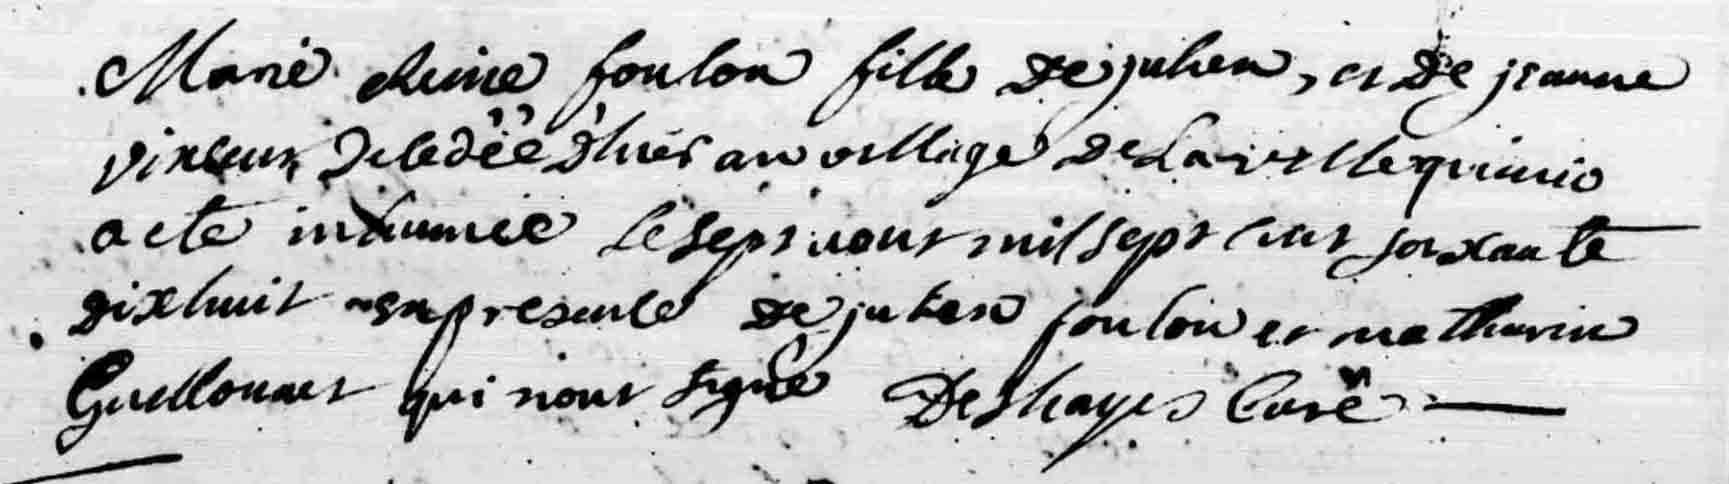 Marie Reine foulon fille de julien, et de jeanne
decédëe d'hiér au village de La ville quinio
a eté inhumée le sept aout mil sept cent soixante
dix huit en presence de julien foulon et mathurin
Guillouart qui n'ont signé Deshayes Curé